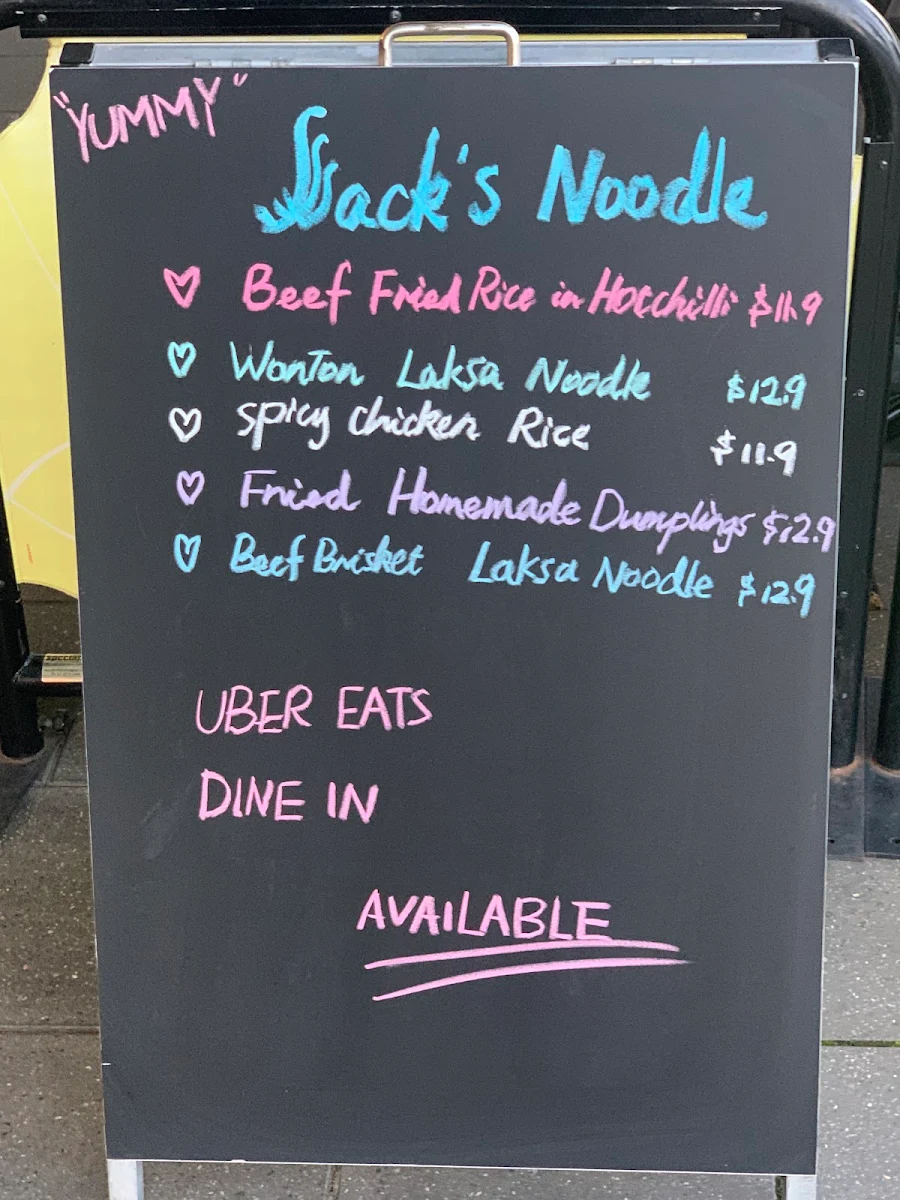 "YUMMY"
Jack's Noodle
Beef Fried Rice in Hotchilli $11.9
Wonton Laksa Noodle $12.9
Spicy Chicken Rice $11.9
Fried Homemade Dumplings $12.9
Beef Brisket Laksa Noodle $12.9
UBER EATS
DINE IN
AVAILABLE